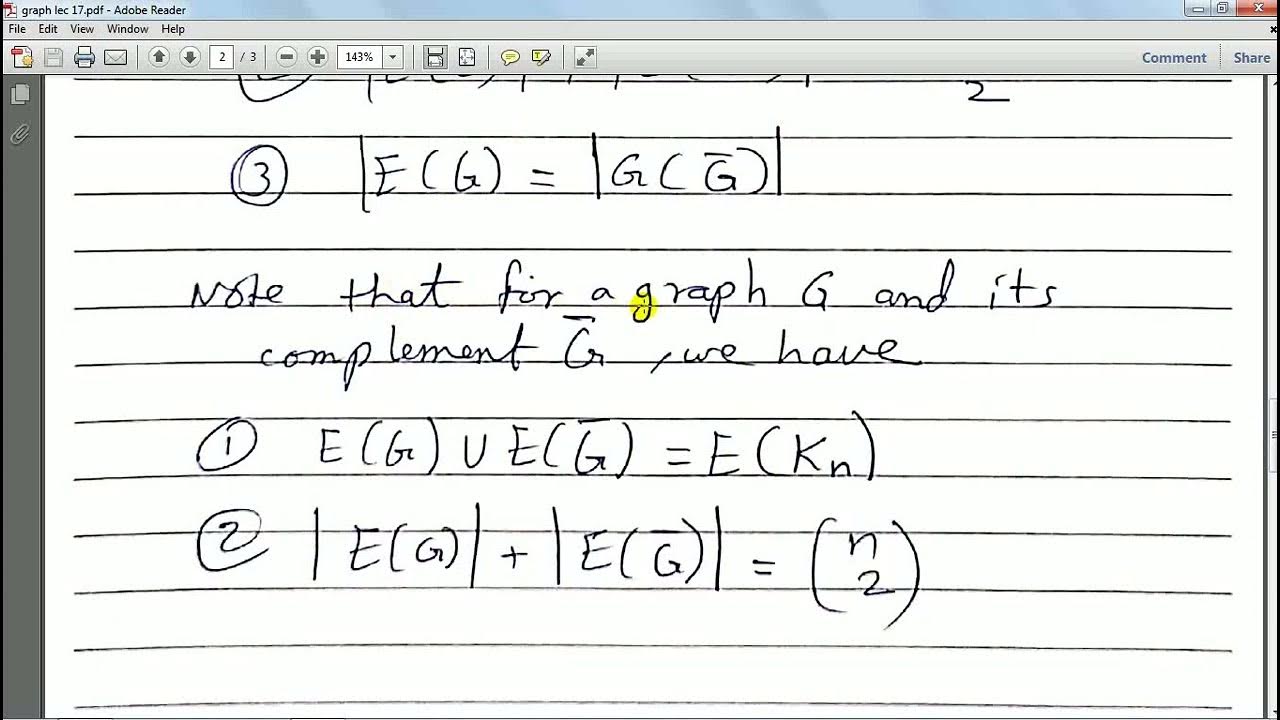 graph lec 17.pdf - Adobe Reader
File Edit View Window Help
2 / 3 143% Comment Share
2
③ |E(G) = |G(G̅)|
Note that for a graph G and its
complement G̅, we have
① E(G) ∪ E(G̅) = E(Kn)
② |E(G)| + |E(G̅)| = (n
2)